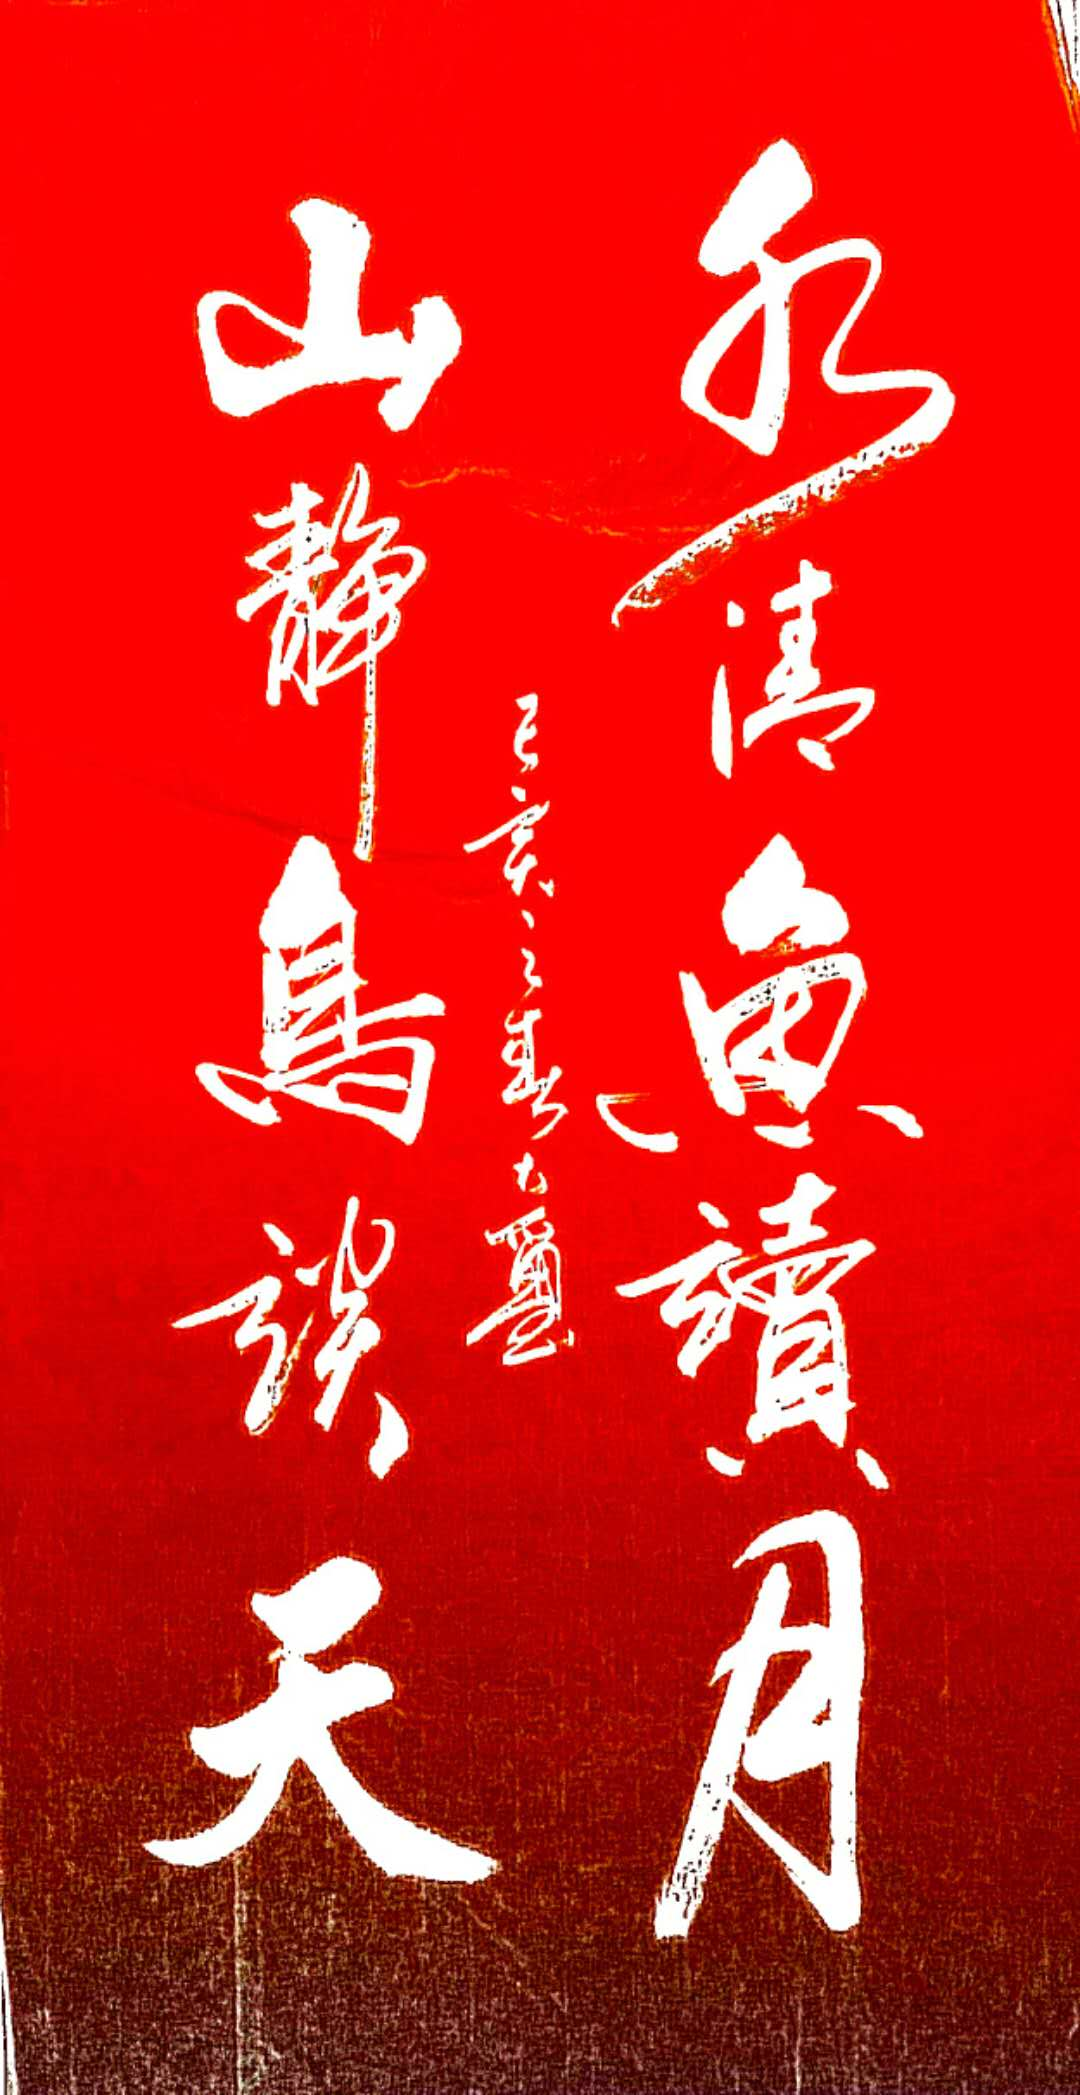 水清魚讀月
山靜鳥談天
己亥之春大